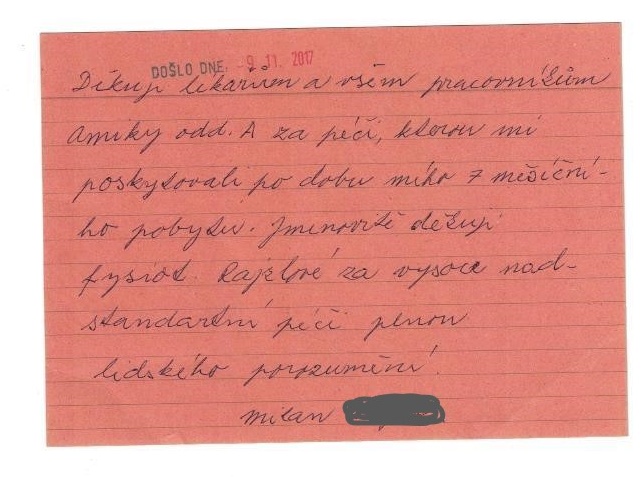 DOŠLO DNE: -9. 11. 2017
Děkuji lékařům a všem pracovníkům
Amiky odd. A za péči, kterou mi
poskytovali po dobu mého 7 měsíční-
ho pobytu. Jmenovitě děkuji
fysiot. Rajzlové za vysoce nad-
standartní péči plnou
lidského porozumění.
Milan